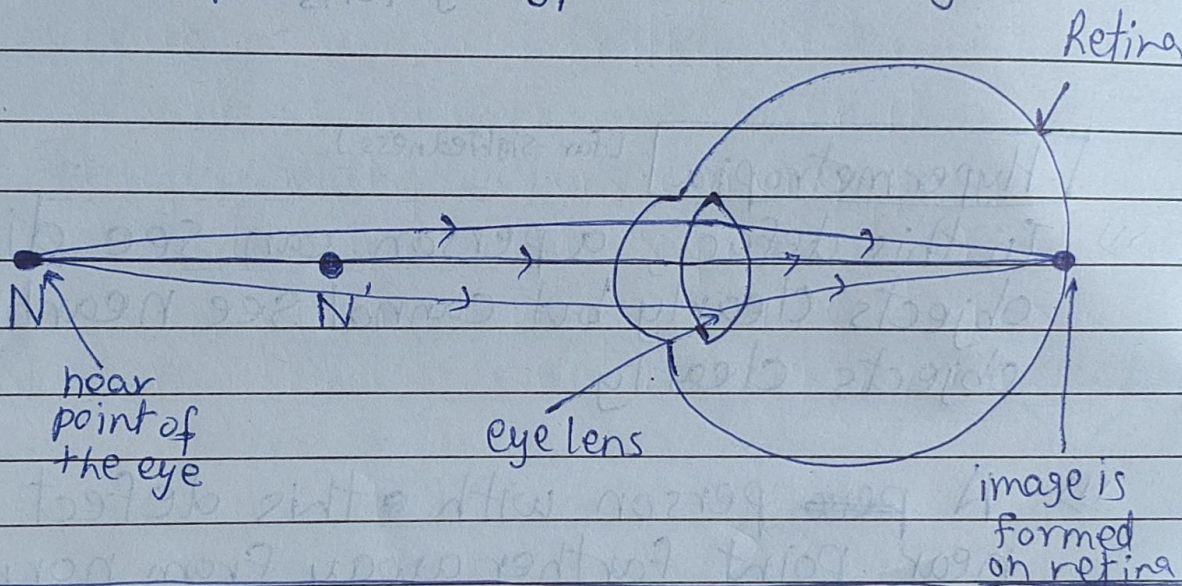 Retina
N
N'
near
point of
the eye
eye lens
image is
formed
on retina